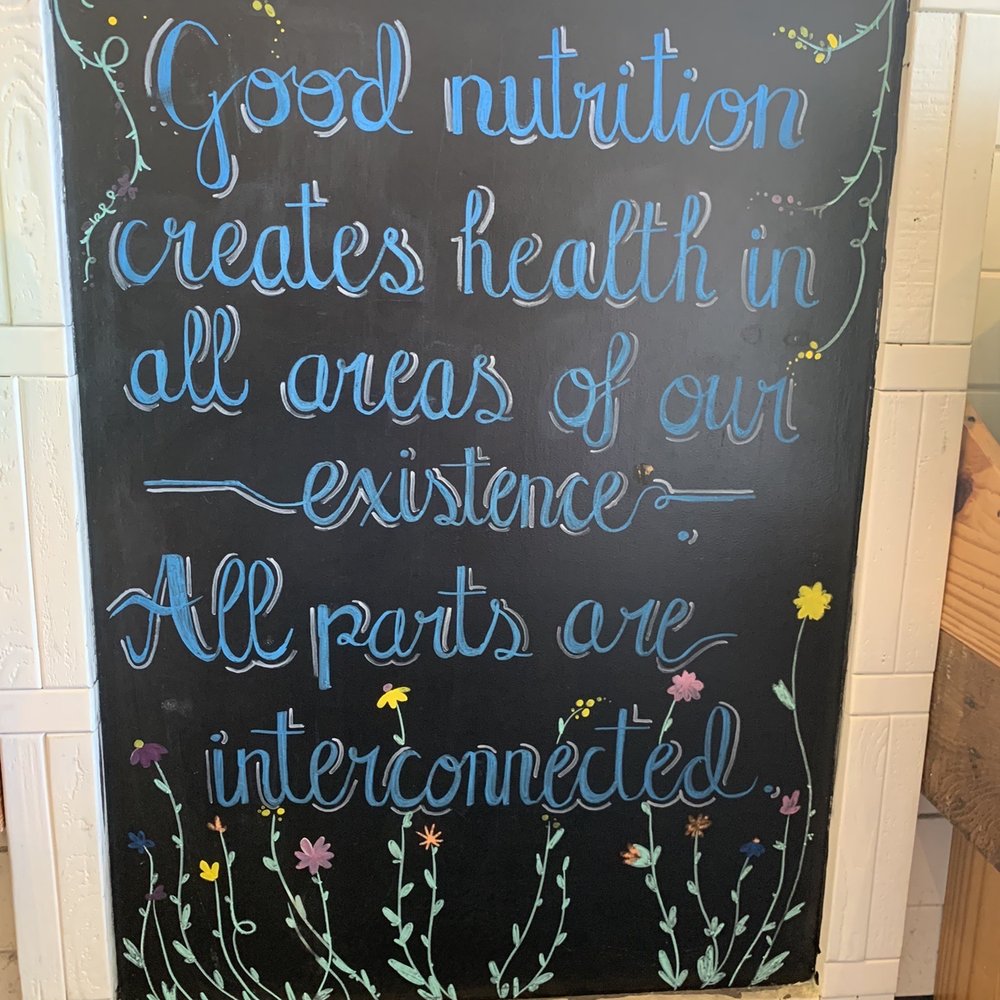 Good nutrition
creates health in
all areas of our
existence.
All parts are
interconnected.